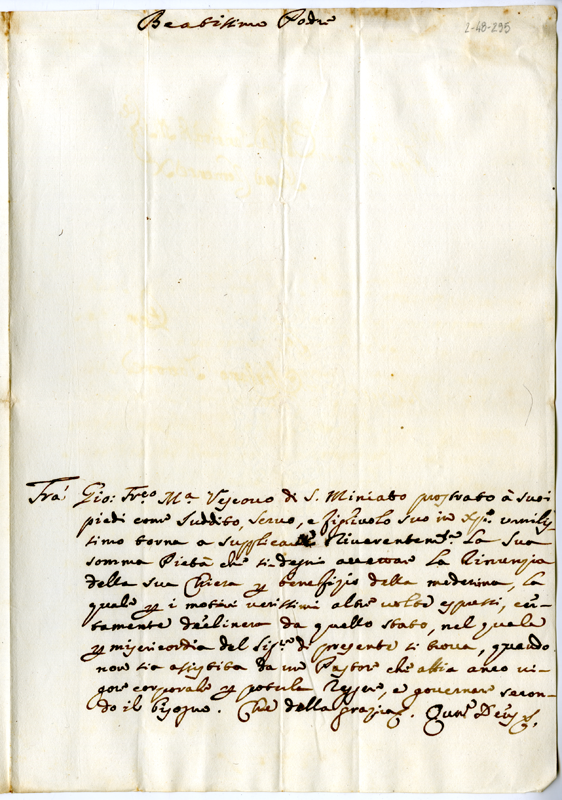 Beatissimo Padre
2-48-295
Fra: Gio: Fr.co M.a Vescovo di S. Miniato prostrato à suoi
piedi come suddito, servo, e figlivolo suo in Xpo. umilis
timo torna a supplicar Riverentem.te la Sua
somma Pietà che si degni accettar la Rinunzia
della sua Chiesa p benefizio della medesima, la
quale p i motivi verissimi altre volte espressi, cer-
tamente declinerà da quello stato, nel quale
p misericordia del Sig.re di presente si trova, quando
non sia assistita da un Pastor che abbia anco vi-
gore corporale p poterla regger, e governar secon-
do il bisogno. Che della grazia. Quam Deus